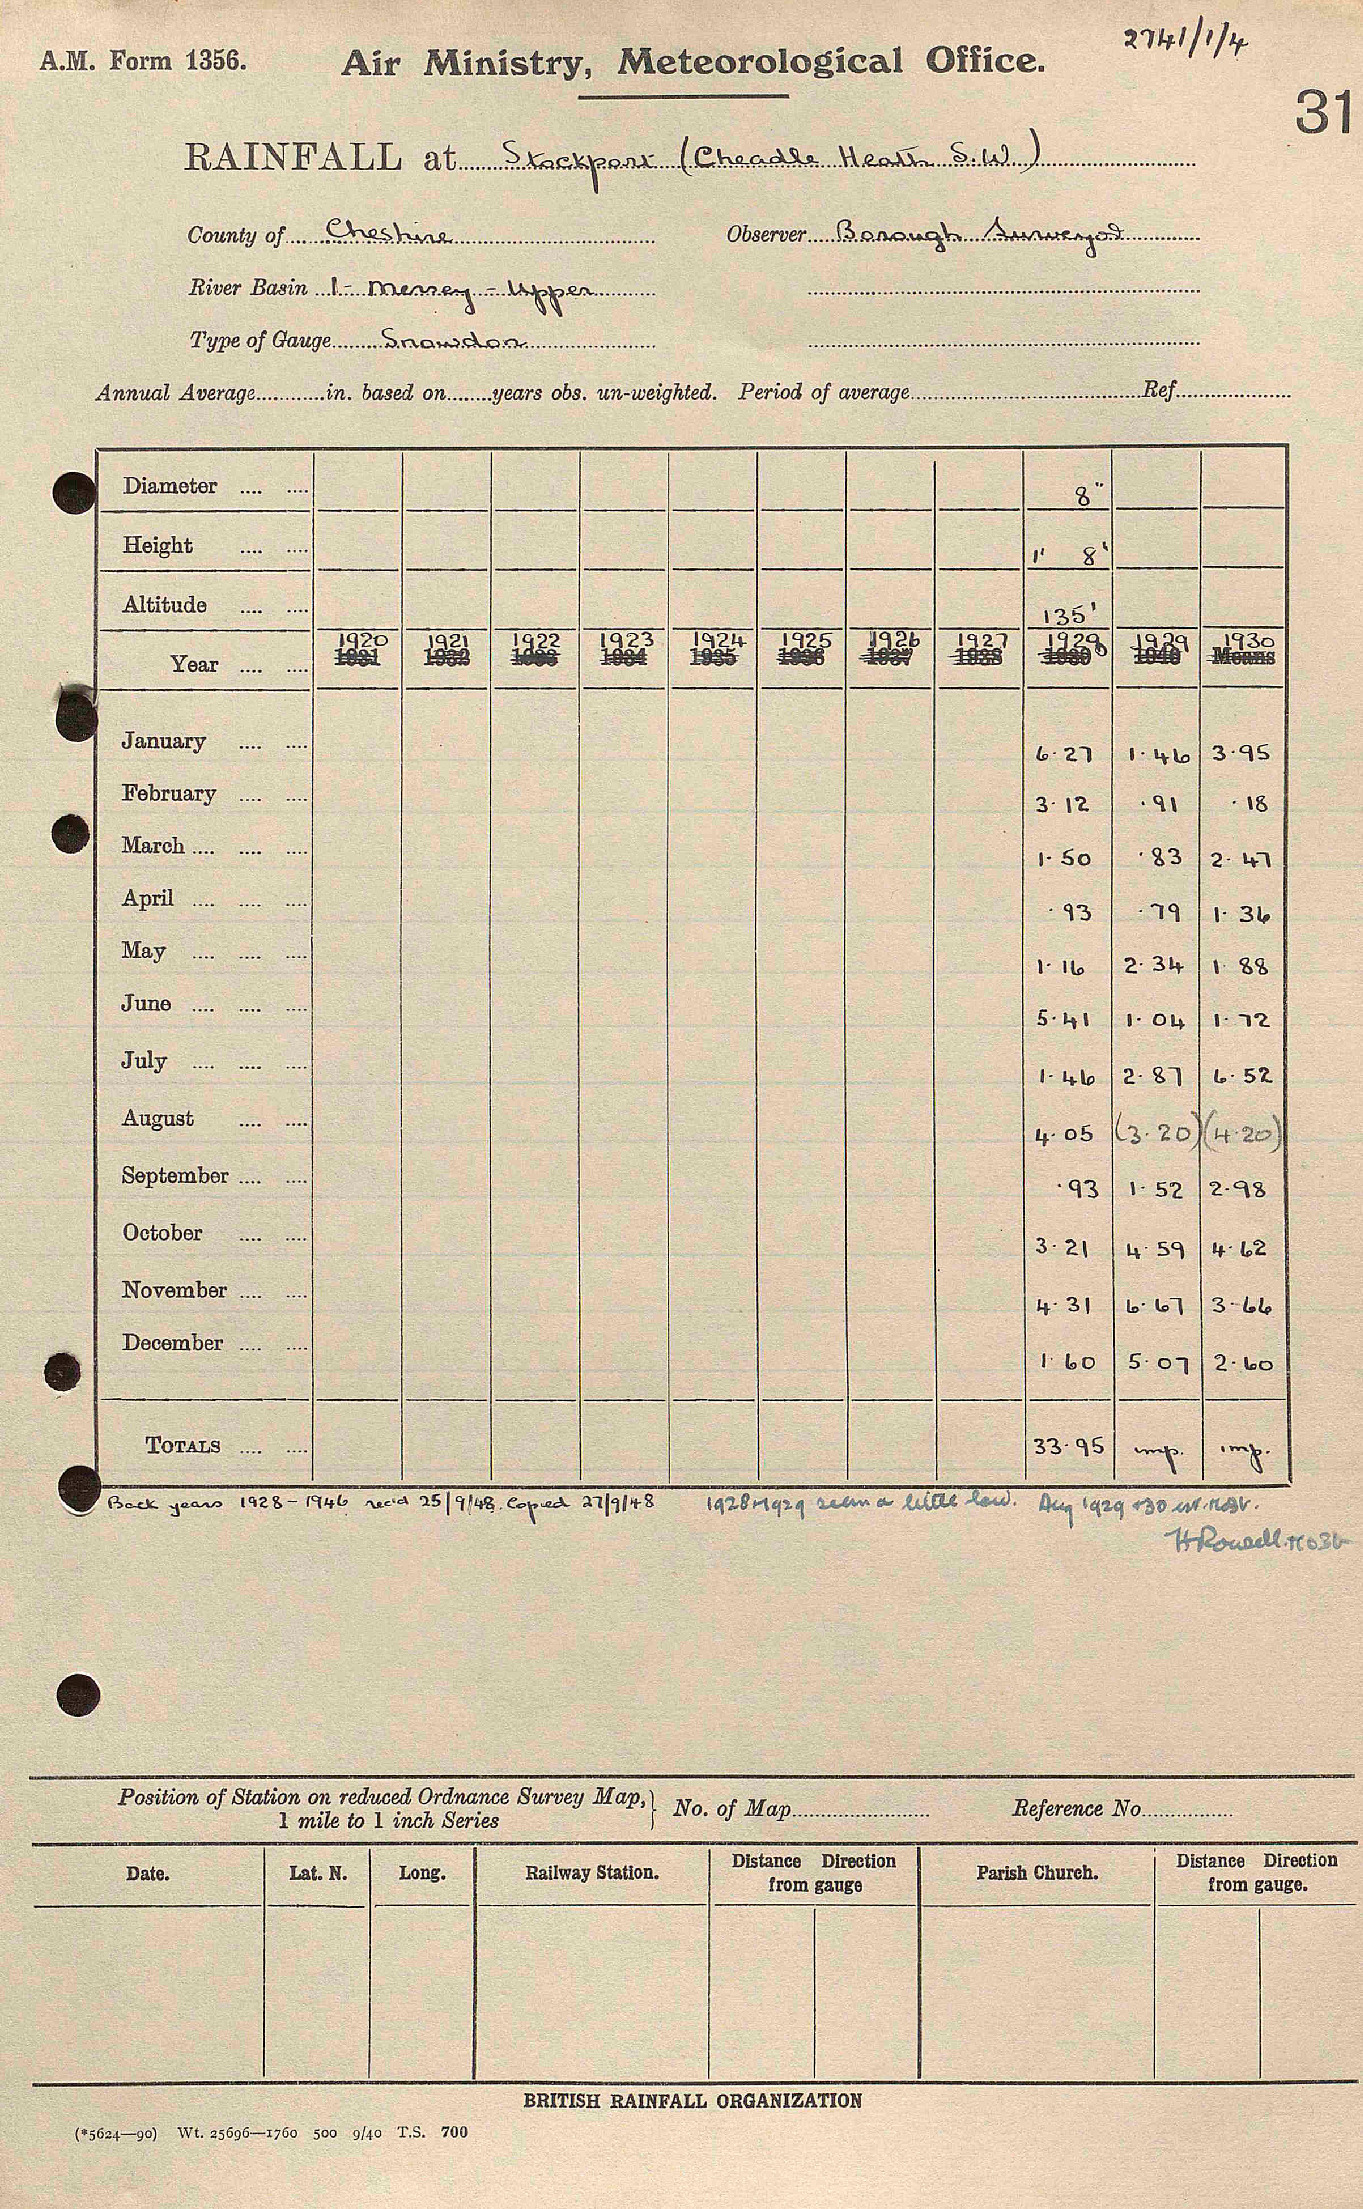 2741/1/4
A.M. Form 1356. Air Ministry, Meteorological Office.
31
RAINFALL at Stockport (Cheadle Heath S.W.)
County of Cheshire Observer Borough Surveyor
River Basin 1 - Mersey - Upper
Type of Gauge Snowdon
Annual Average............in. based on........years obs. un-weighted. Period of average............Ref............
Diameter .... .... 8"
Height .... .... 1' 8"
Altitude .... .... 135'
1920 1921 1922 1923 1924 1925 1926 1927 1928 1929 1930
Year .... .... 1931 1932 1933 1934 1935 1936 1937 1938 1939 1940 Means
January .... .... 6.27 1.46 3.95
February .... .... 3.12 .91 .18
March .... .... .... 1.50 .83 2.47
April .... .... .... .93 .79 1.36
May .... .... .... 1.16 2.34 1.88
June .... .... .... 5.41 1.04 1.72
July .... .... .... 1.46 2.87 6.52
August .... .... 4.05 (3.20) (4.20)
September .... .... .93 1.52 2.98
October .... .... 3.21 4.59 4.62
November .... .... 4.31 6.67 3.66
December .... .... 1.60 5.07 2.60
TOTALS .... .... 33.95 imp. imp.
Back years 1928-1946 recd 25/9/48. Copied 27/9/48 1928+1929 seem a little low. Aug 1929 +30 est.
Position of Station on reduced Ordnance Survey Map,} No. of Map............ Reference No............
1 mile to 1 inch Series
Date. Lat. N. Long. Railway Station. Distance Direction from gauge Parish Church. Distance Direction from gauge.
BRITISH RAINFALL ORGANIZATION
(*5624—90) Wt. 25696—1760 500 9/40 T.S. 700